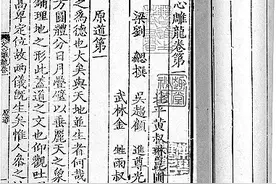 心雕龍卷第一
梁劉勰撰 黃叔琳
吳趨顧進尊光
武林金甡雨叔
原道第一
之為德也大矣與天地並生者何哉
方圓體分日月疊璧以垂麗天之象
鋪理地之形此蓋道之文也仰觀吐
高卑定位故兩儀既生矣惟人參之
原道